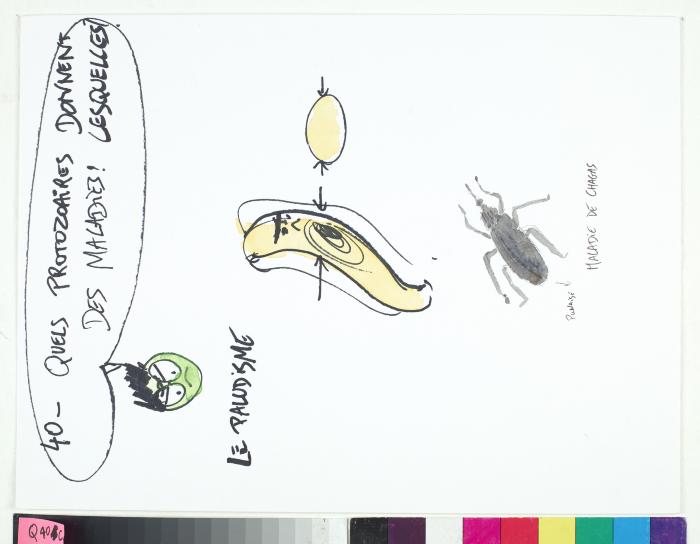 40 - QUELS PROTOZOAIRES DONNENT
DES MALADIES! LESQUELLES!
LE PALUDISME
Punaise!
MALADIE DE CHAGAS